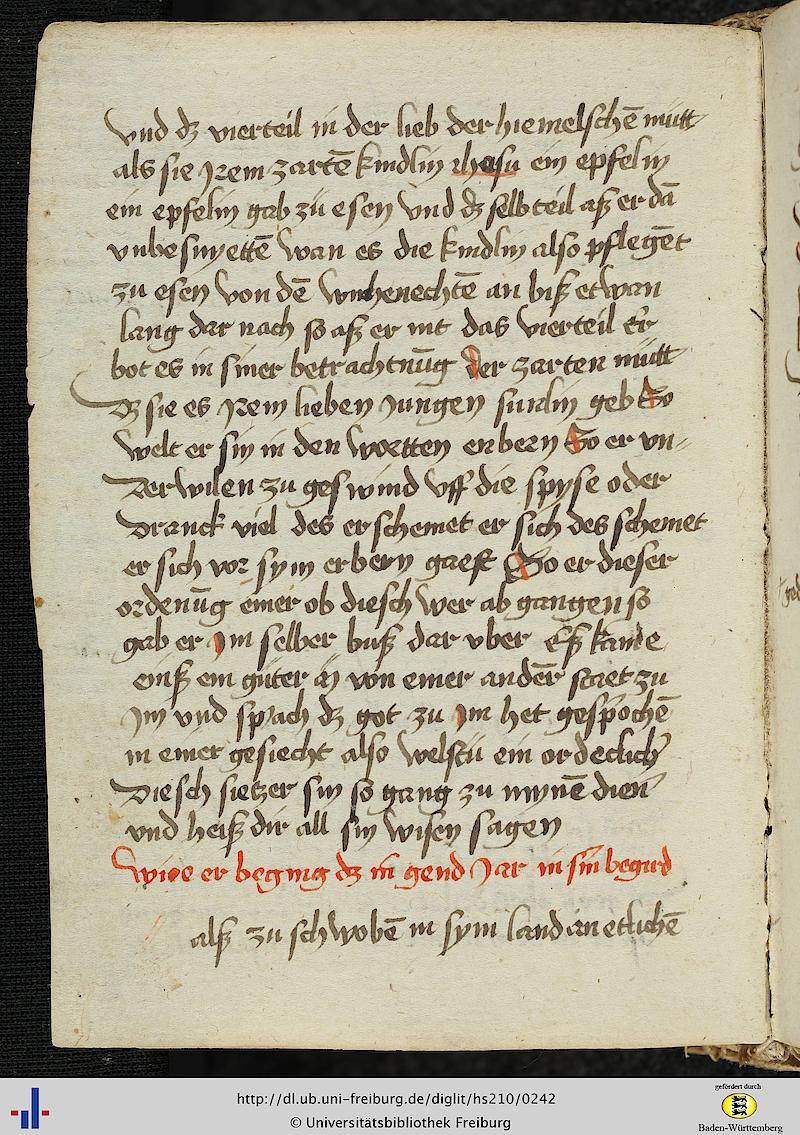 vnd dz vierteil in der lieb der hiemelschē mutt
als sie Jrem zartē kindlin ihesu ein epfelin
ein epfelin gab zu esen vnd dz selb teil aß er dā
vnbesnyettē wan es die kindlin also pflegēt
zu esen von dē wihenechtē an biß etwan
lang dar nach so aß er nit das vierteil Er
bot es in siner betrachtnūg der zarten mutt
Dz sie es Jrem lieben Jungen sunlin geb So
welt er sin in den wortten enbern So er vn-
Der wilen zu geswind vff die spyse oder
Dranck viel des erschemet er sich des schemet
er sich vor sym erbern gaest So er dieser
ordenūg einer ob diesch wer ab gangen so
gab er Jm selber buß dar vber Eß kame
einß ein guter von einer ander staet zu
Jm vnd sprach dz got zu Jm het gesprochē
in einer gesiecht also welstu ein ordeclich
Diesch sietzer sin so gang zu mynē dien
vnd heiß dir all sin wisen sagen
wiee er beging dz in gend Jar in sim begird
alß zu schwobē in sym land an etlichē
http://dl.ub.uni-freiburg.de/diglit/hs210/0242
© Universitätsbibliothek Freiburg
gefördert durch
Baden-Württemberg